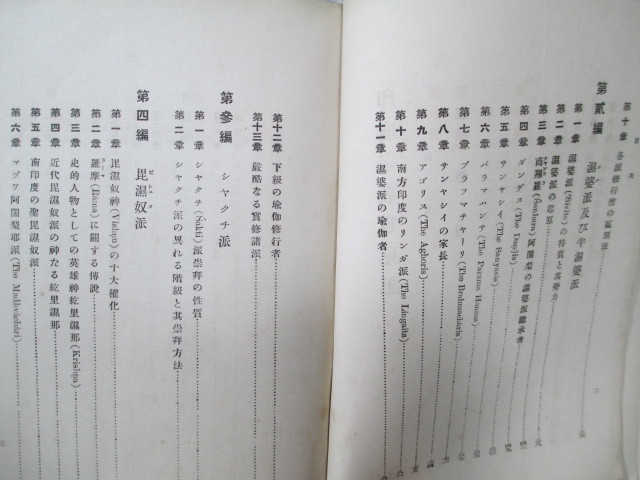 第十章 各派修行僧の區別法
第貳編 濕婆派及び半濕婆派
第一章 濕婆派(Sivite)の特質と其勢力
第二章 濕婆派の起原
第三章 商羯羅(Sankara)阿闍梨の濕婆派繼承者
第四章 ダンデス(The Dandis)
第五章 サンヤシイ(The Sanyasis)
第六章 パラマハンサ(The Parama Hamsa)
第七章 ブラフマチャーリ(The Brahmacharis)
第八章 サンヤシイの家長
第九章 アゴリス(The Aghoris)
第十章 南方印度のリンガ派(The Lingaits)
第十一章 濕婆派の瑜伽者
第十二章 下級の瑜伽修行者
第十三章 嚴酷なる實修諸派
第參編 シャクチ派
第一章 シャクチ(Sakti)派崇拜の性質
第二章 シャクチ派の異れる階級と其崇拜方法
第四編 毘濕奴派
第一章 毘濕奴神(Vishnu)の十大權化
第二章 羅摩(Rama)に關する傳說
第三章 史的人物としての英雄神紇里濕那(Krishna)
第四章 近代毘濕奴派の神たる紇里濕那
第五章 南印度の聖毘濕奴派
第六章 マヅワ阿闍梨耶派(The Madhvachari)